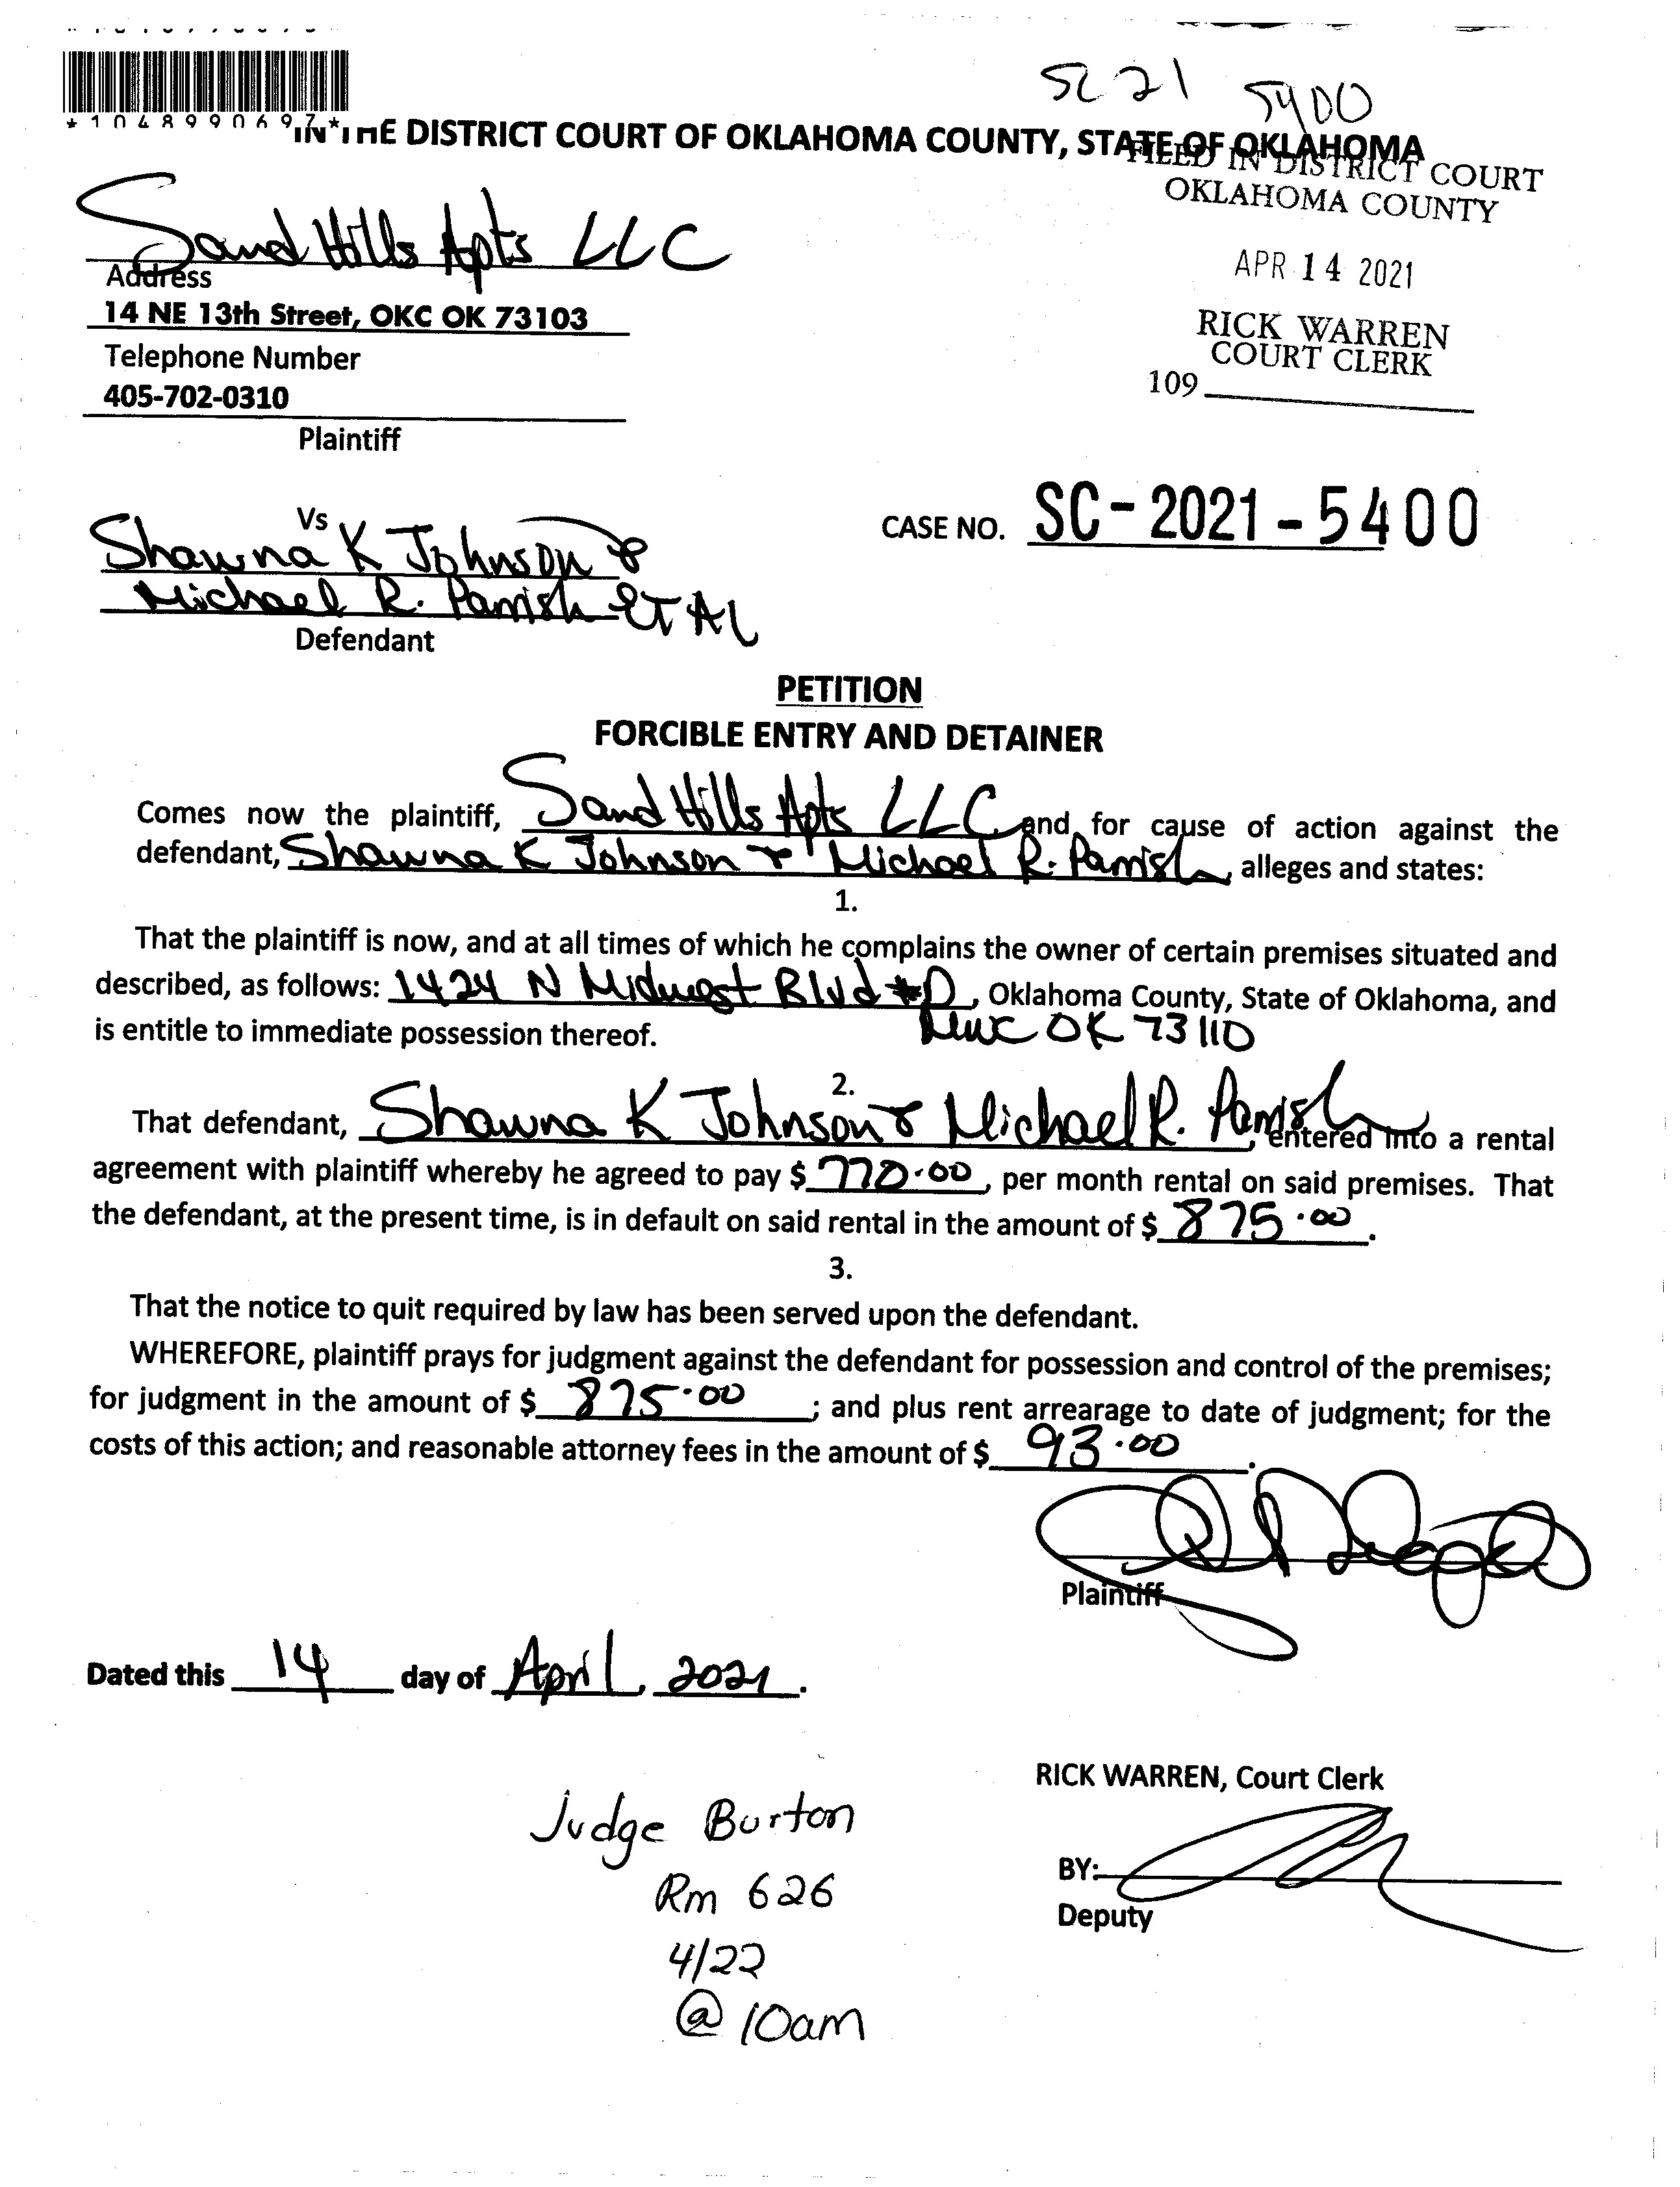 SC 21 5400
*1048990697*
IN THE DISTRICT COURT OF OKLAHOMA COUNTY, STATE OF OKLAHOMA
FILED IN DISTRICT COURT
OKLAHOMA COUNTY
APR 14 2021
RICK WARREN
COURT CLERK
109
Sand Hills Apts LLC
Address
14 NE 13th Street, OKC OK 73103
Telephone Number
405-702-0310
Plaintiff
Vs
CASE NO. SC-2021-5400
Shawna K Johnson &
Michael R. Parrish ET AL
Defendant
PETITION
FORCIBLE ENTRY AND DETAINER
Comes now the plaintiff, Sand Hills Apts LLC, and for cause of action against the
defendant, Shawna K Johnson & Michael R. Parrish, alleges and states:
1.
That the plaintiff is now, and at all times of which he complains the owner of certain premises situated and
described, as follows: 1424 N Midwest Blvd #D, Oklahoma County, State of Oklahoma, and
is entitle to immediate possession thereof. MWC OK 73110
2.
That defendant, Shawna K Johnson & Michael R. Parrish, entered into a rental
agreement with plaintiff whereby he agreed to pay $ 770.00, per month rental on said premises. That
the defendant, at the present time, is in default on said rental in the amount of $ 875.00.
3.
That the notice to quit required by law has been served upon the defendant.
WHEREFORE, plaintiff prays for judgment against the defendant for possession and control of the premises;
for judgment in the amount of $ 875.00; and plus rent arrearage to date of judgment; for the
costs of this action; and reasonable attorney fees in the amount of $ 93.00.
Plaintiff
Dated this 14 day of April, 2021.
RICK WARREN, Court Clerk
Judge Burton
Rm 626
BY:
Deputy
4/22
@ 10am